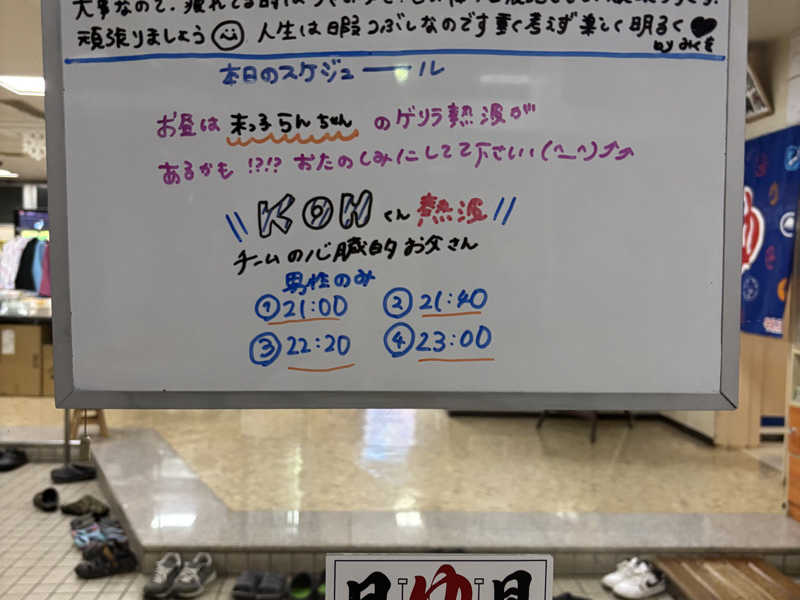 頑張りましょう 人生は暇つぶしなのです重く考えず楽しく明るく
byみくを
本日のスケジュール
お昼は末っ子らんちゃんのゲリラ熱波が
あるかも!?!? おたのしみにしてて下さい(^_^)
\\KOHくん熱波//
チームの心臓的お父さん
男性のみ
①21:00 ②21:40
③22:20 ④23:00
ゆ